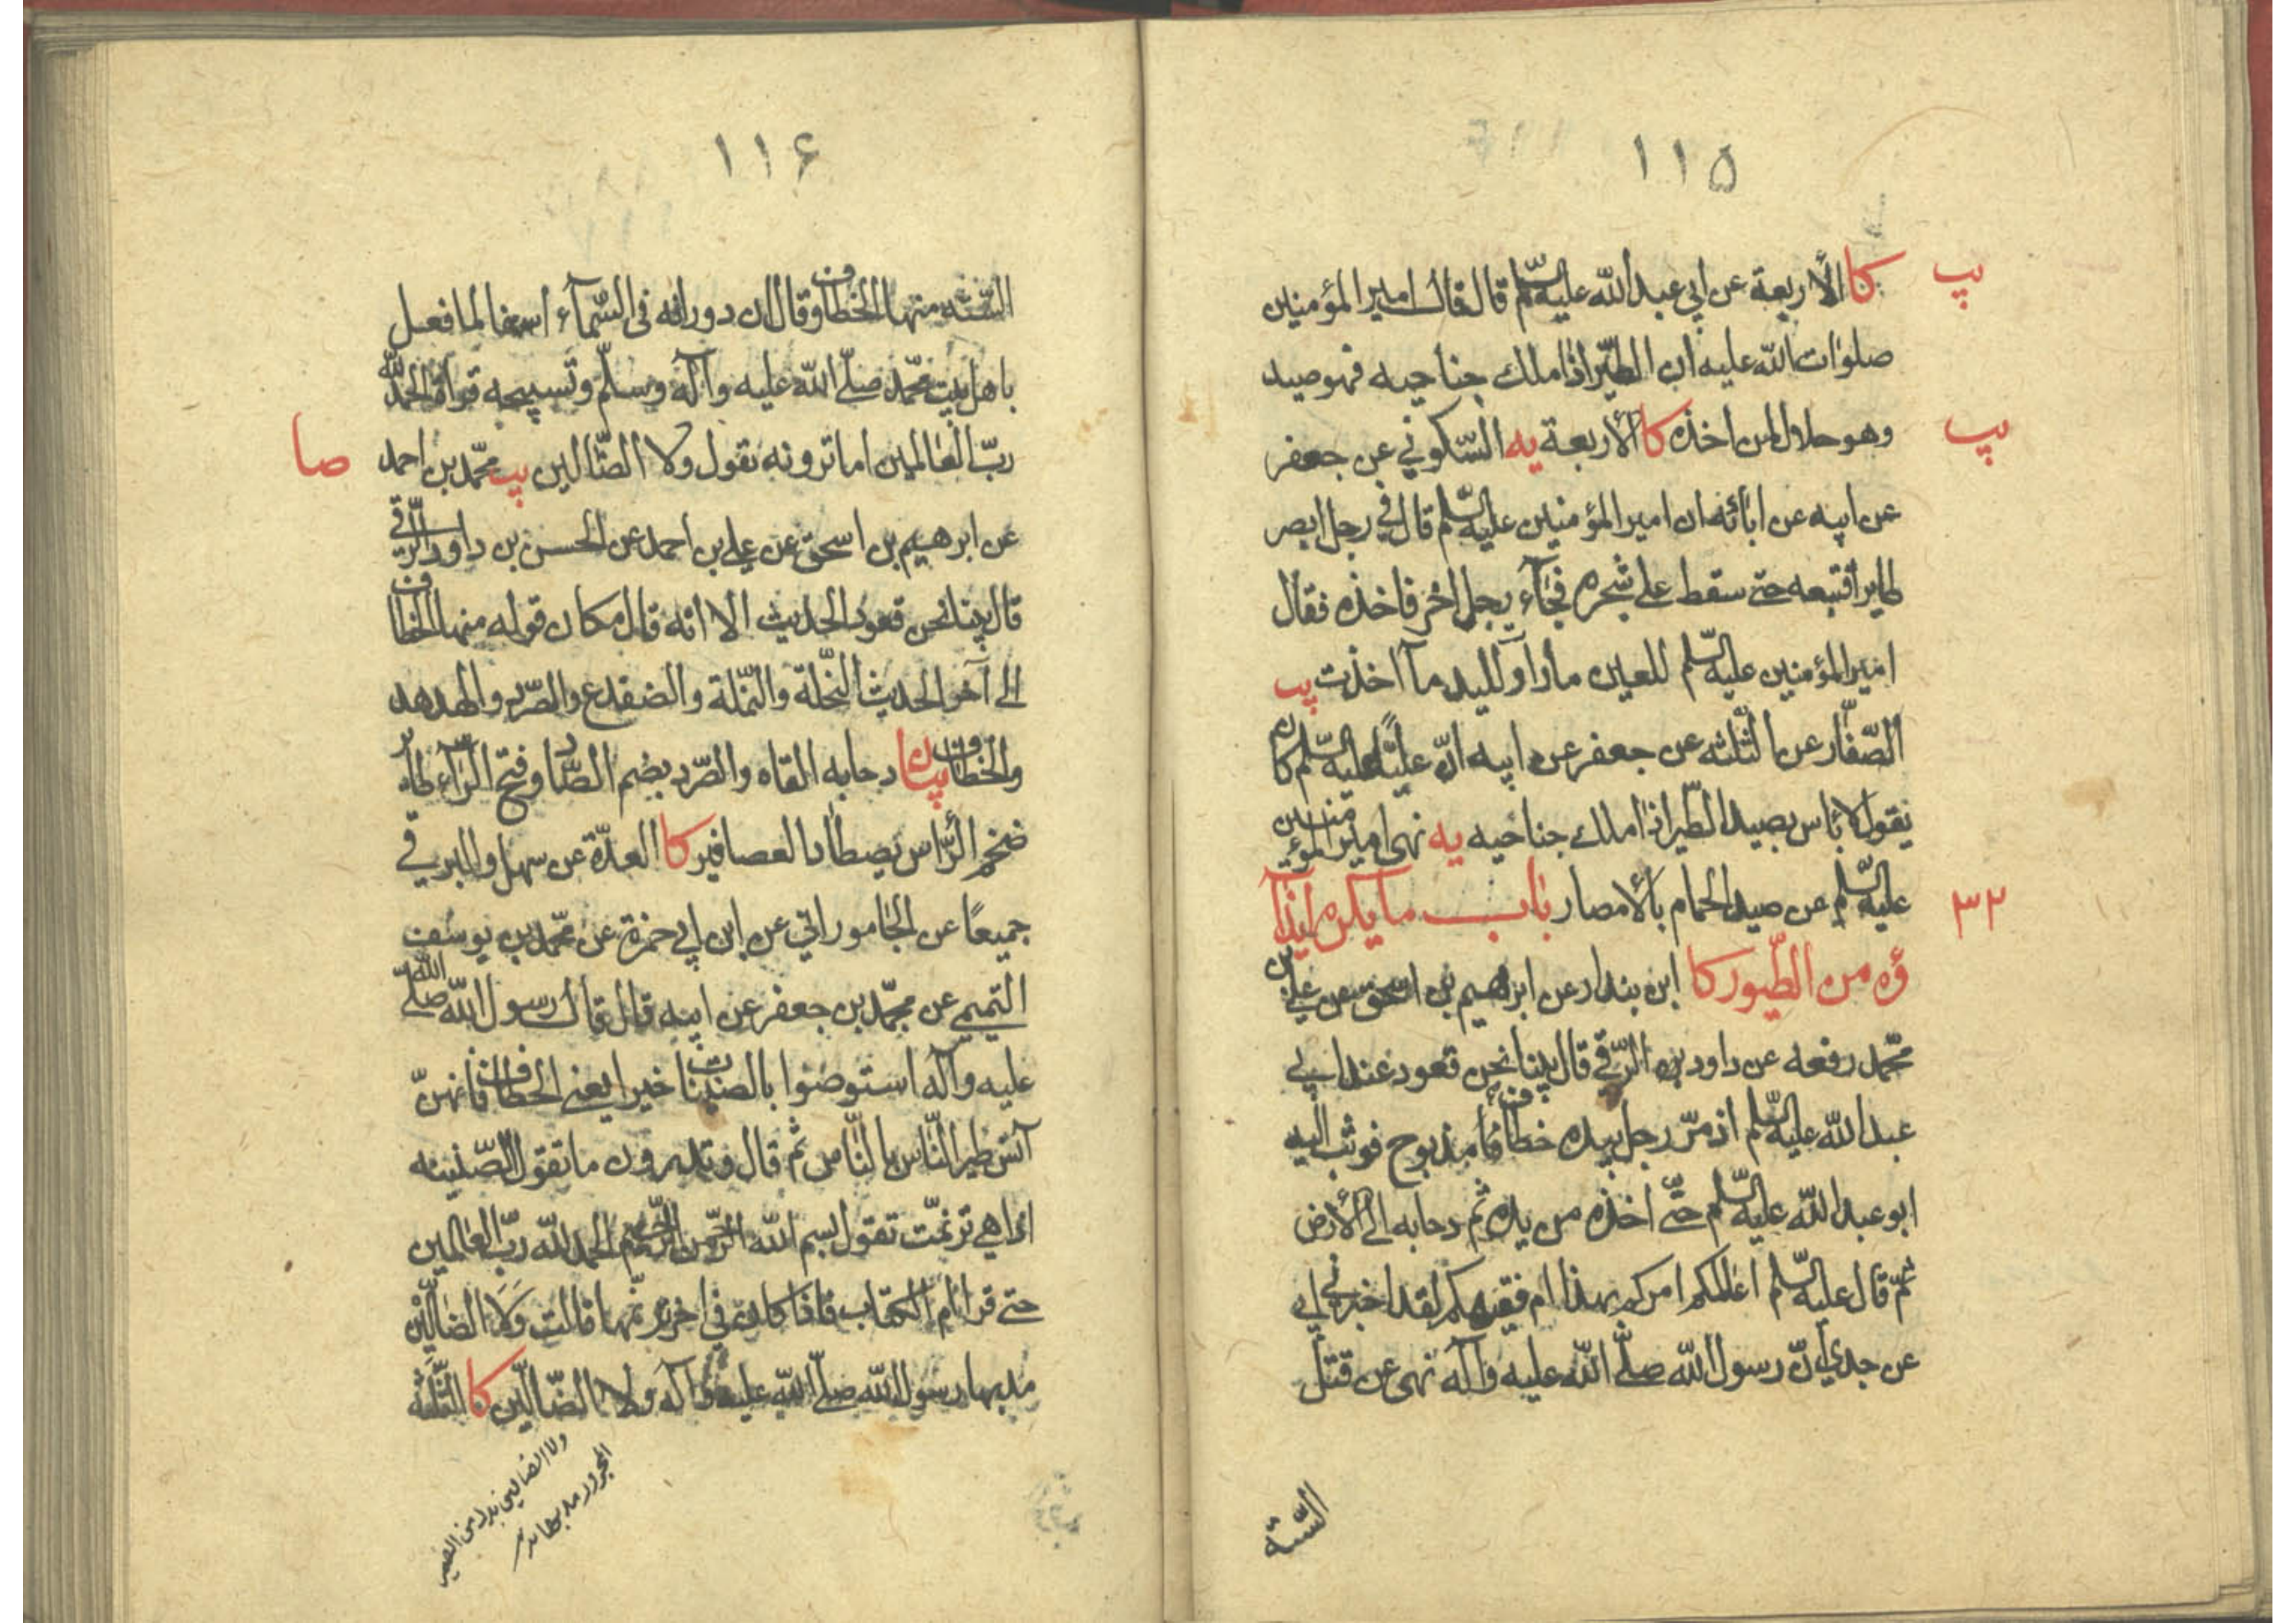 ١١۵
يب
كا الأربعة عن ابي عبد الله عليه السّلم قال قال امير المؤمنين
صلوات الله عليه ان الطّير اذا ملك جناحيه فهو صيد
وهو حلال لمن اخذه كا الأربعة يه السّكوني عن جعفر
يب
عن ابيه عن ابائه ان امير المؤمنين عليه السّلم قال في رجل ابصر
طايرا فتبعه حتى سقط على شجره فجآء رجل اخر فاخذه فقال
امير المؤمنين عليه السّلم للعين ما رأ و لليد مآ اخذت يب
الصّفّار عن الثّلثه عن جعفر عن ابيه انّ عليّا عليه السّلم كان
يقول لا باس بصيد الطّير اذا ملك جناحيه يه نهى امير المؤمنين
عليه السّلم عن صيد الحمام بالأمصار باب ما يكره ايذآ
٣٢
ؤه من الطّيور كا ابن بندار عن ابرهيم بن اسحق عن علي بن
محمّد رفعه عن داود الرّقي قال بينا نحن قعود عند ابي
عبد الله عليه السّلم اذ مرّ رجل بيده خطاف مذبوح فوثب اليه
ابو عبد الله عليه السّلم حتّى اخذه من يده ثم دحا به الى الأرض
ثمّ قال عليه السّلم اعالمكم امركم بهذا ام فقيهكم لقد اخبرني ابي
عن جدي انّ رسول الله صلّى الله عليه وآله نهى عن قتل
السّتة
١١۶
السّتّه منها الخطاف وقال ان دورانه في السّمآء اسفا لما فعل
باهل بيت محمّد صلّى الله عليه وآله وسلّم وتسبيحه قراءة الحمد لله
ربّ العالمين اما ترونه يقول ولا الضّالين يب محمّد بن احمد
صا
عن ابرهيم بن اسحق عن علي بن احمد عن الحسن بن داود الرّقي
قال بينا نحن قعود الحديث الا انّه قال مكان قوله منها الخطاف
الى آخر الحديث النّحلة والنّملة والضفدع والصّرد والهدهد
والخطاف بيان دحا به القاه والصّرد بضم الصّاد وفتح الرّآء طاير
ضخم الرّاس يصطاد العصافير كا العدّة عن سهل والبرقي
جميعًا عن الجاموراني عن ابن ابي حمزة عن محمّد بن يوسف
التميمي عن محمّد بن جعفر عن ابيه قال قال رسول الله صلّى الله
عليه وآله استوصوا بالصنينات خيرا يعني الخطاف فانهنّ
آنس طير النّاس بالنّاس ثم قال وتدرون ما تقول الصّنينه
اذا هي ترنمّت تقول بسم الله الرّحمن الرّحيم الحمد لله ربّ العالمين
حتى قرا ام الكتاب فاذا كان في اخر ترنّمها قالت وَلَا الضالّين
مد بها رسول الله صلّى الله عليه وآله ولا الضّالّين كا الثّلثه
ولا الضالين بدل من الضمير
المجرور مد بها